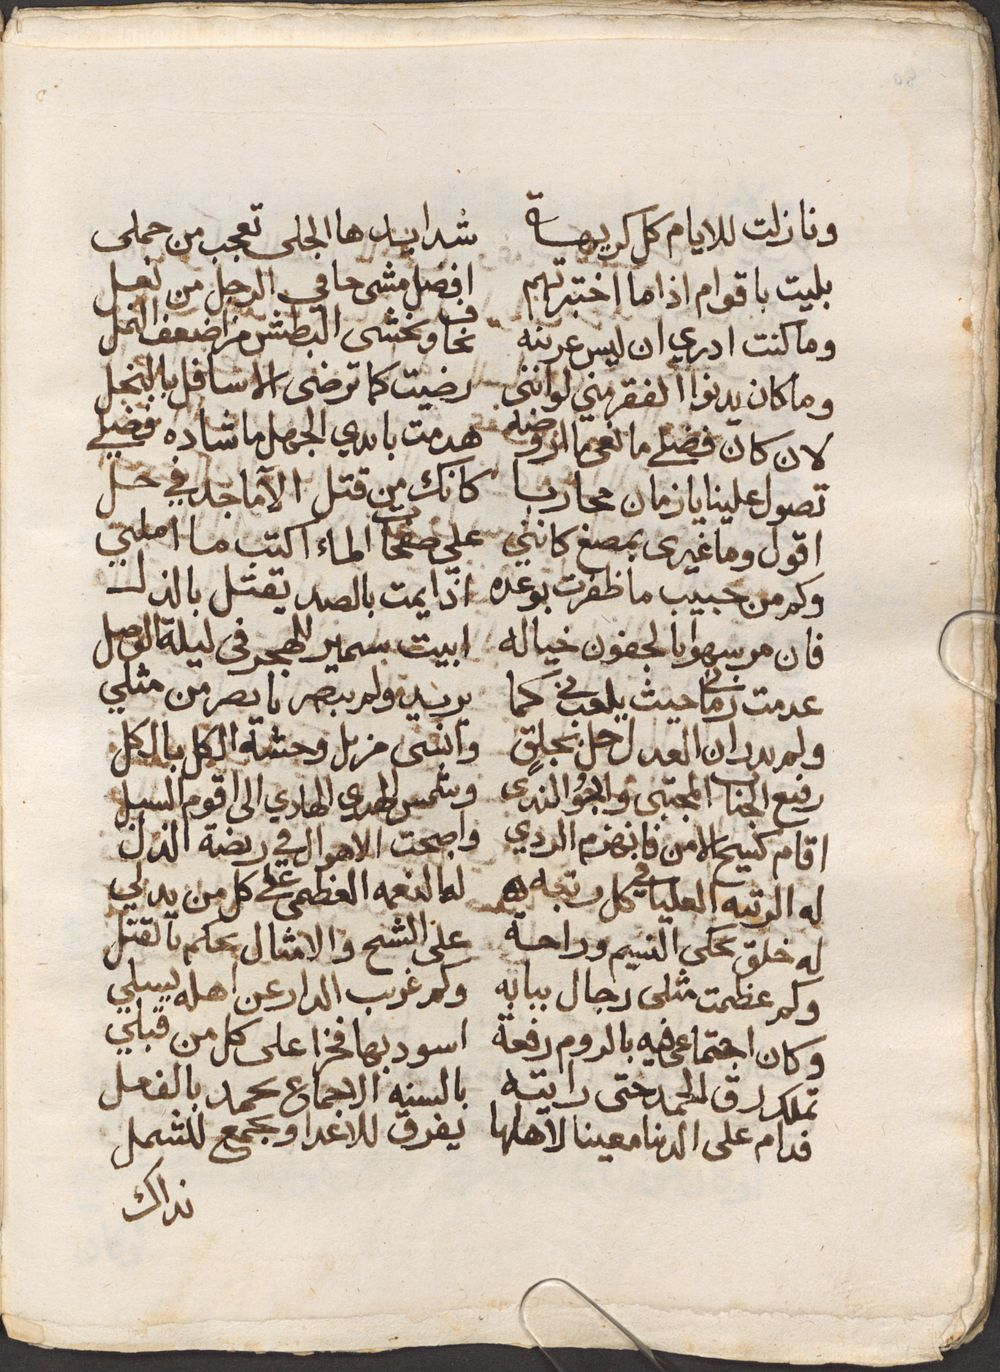 ونازلت للايام كل كريهة شدايدها الجلى تعجب من حملى
بليت باقوام اذاما اختبرتهم افضل مشى حافي الرجل من نعل
وماكنت ادري ان ليس عرينه نخاف ويخشى البطش من اضعف النمل
وماكان يدنوا الفقر مني لوانني رضيت كما ترضى الاسافل بالبخل
لان كان فضلي مانعي ما اروضه هدمت بايدي الجهل ماشاده فضلي
تصول علينا يازمان محاربا كانك من قتل الاماجد في حل
اقول وماغيرى بمصغ كانني على صفحات الماء اكتب ما املي
وكم من حبيب ما ظفرت بوعده اذا يمت بالصد يقتل بالذل
فان مر سهوا بالجفون خياله ابيت سمير الهجر في ليلة الوصل
عدمت زمانى حيث يلعب بي كما يريد ولم يبصر بابصر من مثلي
ولم يدر ان العدل حل بجلق وانسى مزيل وحشة الكل بالكل
رفيع الجناب المجتبى والجو الندى وشمس الهدى الهادي الى اقوم السبل
اقام كسيح الامن فانهزم الردي واضحت الاهوال في ربضة الذل
له الرتبه العليا في كل وجهه له النعمه العظمى على كل من يدلي
له خلق تحكى النسيم وراحة على الشح والامثال تحكم بالقتل
وكم عظمت مثلى رجال ببابه وكم غريب الدار عن اهله يسلي
وكان اجتماعى فيه بالروم رفعة اسود بها فخرا على كل من قبلي
تملك رق الحمد حتى رايته بالسنه الاجماع يحمد بالفعل
فدام على الدنيا معينا لاهلها يفرق للاعدا ويجمع للشمل
نداك